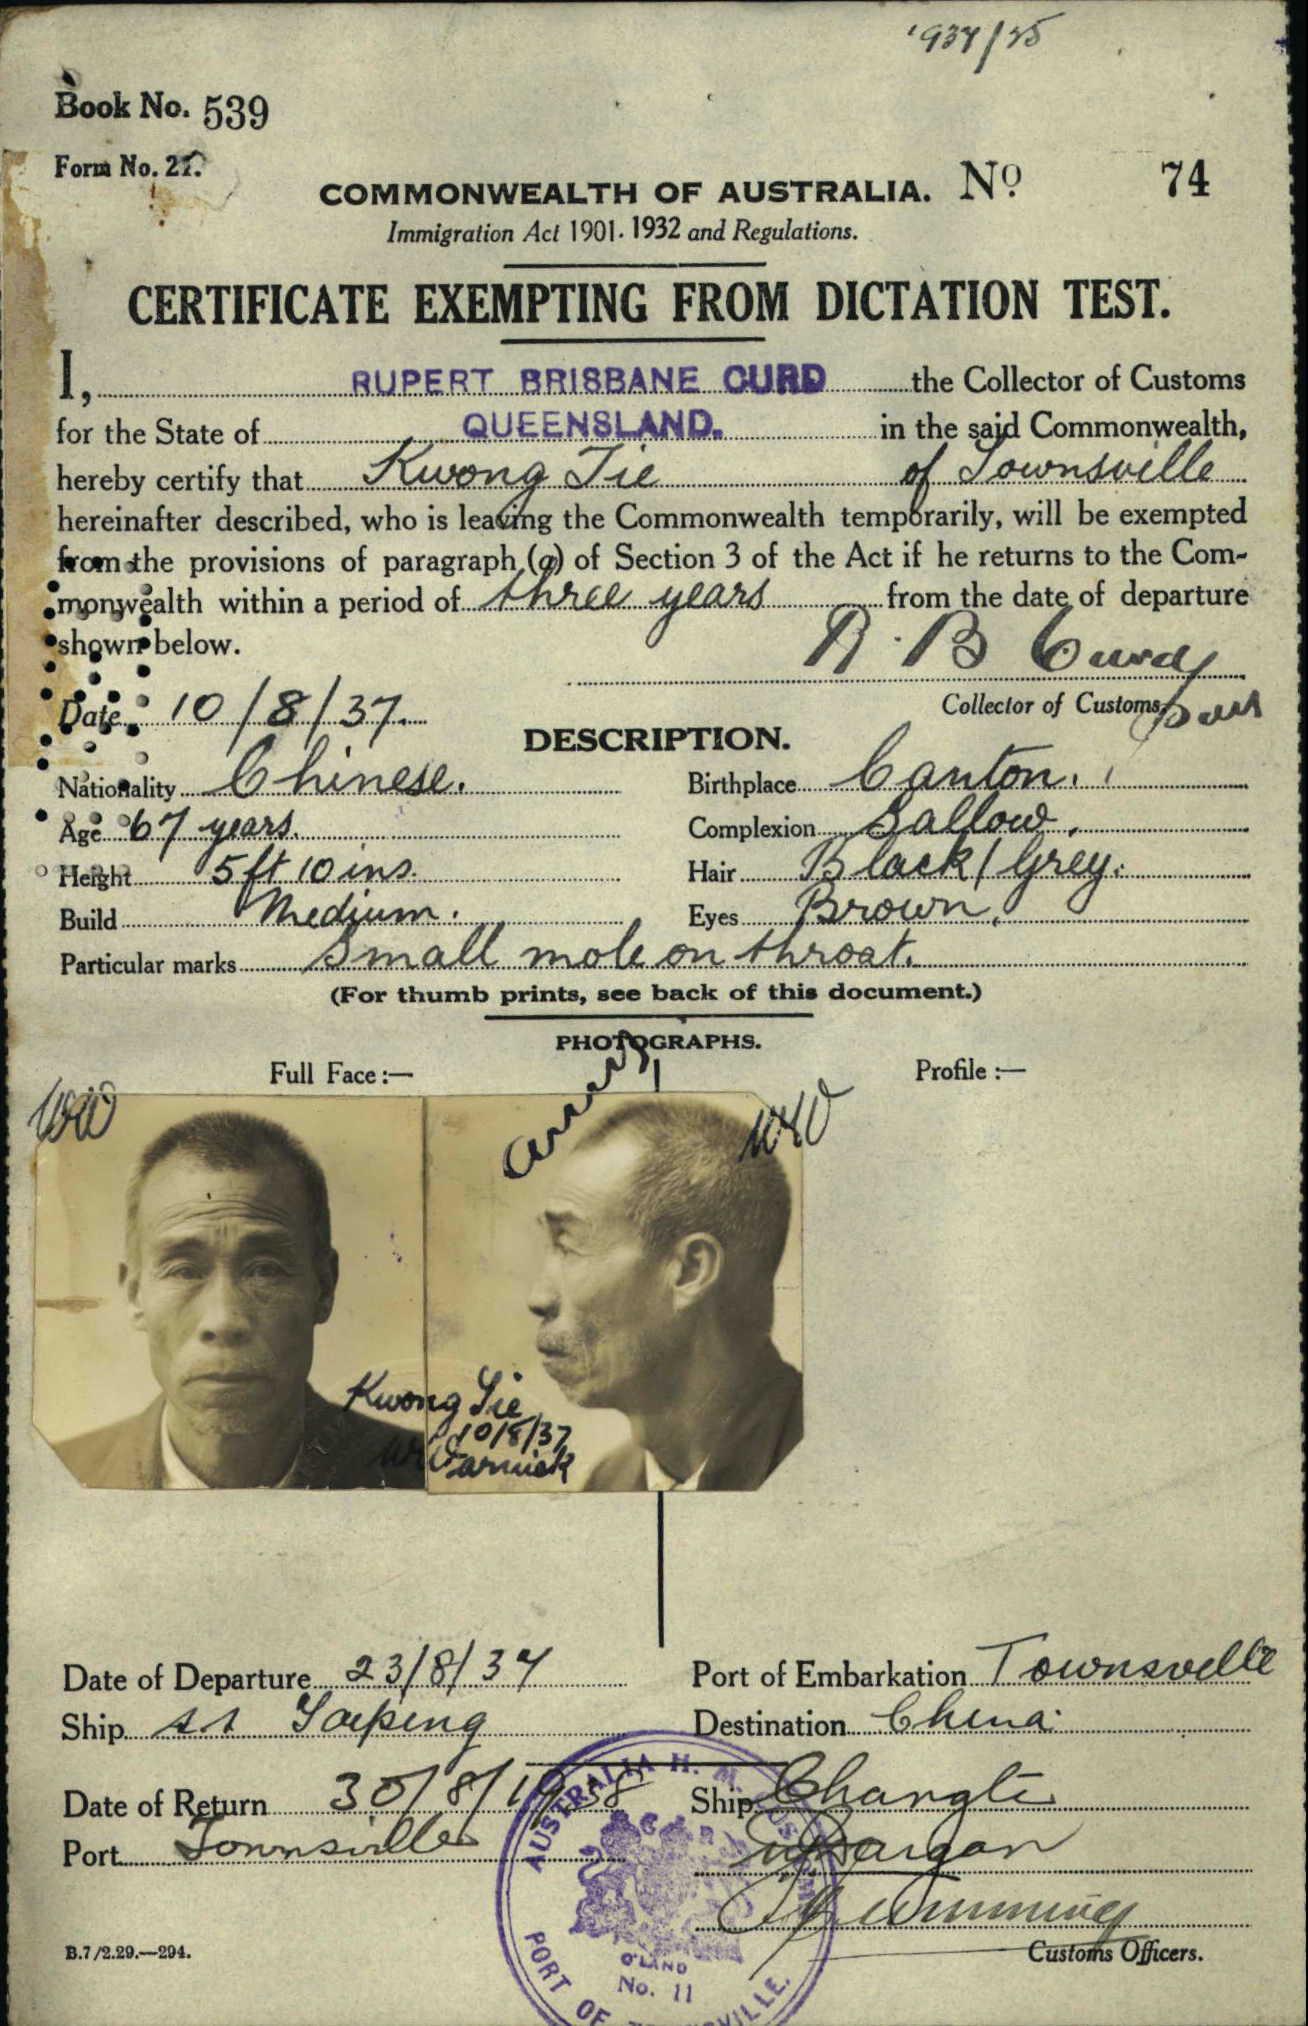 1937/25
Book No. 539
Form No. 21.
COMMONWEALTH OF AUSTRALIA. No 74
Immigration Act 1901-1932 and Regulations.
CERTIFICATE EXEMPTING FROM DICTATION TEST.
I, RUPERT BRISBANE CURD the Collector of Customs
for the State of QUEENSLAND. in the said Commonwealth,
hereby certify that Kwong Tie of Townsville
hereinafter described, who is leaving the Commonwealth temporarily, will be exempted
from the provisions of paragraph (a) of Section 3 of the Act if he returns to the Com-
monwealth within a period of three years from the date of departure
shown below.
R. B Curd
Collector of Customs
Date 10/8/37.
DESCRIPTION.
Nationality Chinese. Birthplace Canton.
Age 67 years. Complexion Sallow.
Height 5ft 10ins. Hair Black/Grey.
Build Medium. Eyes Brown.
Particular marks Small mole on throat.
(For thumb prints, see back of this document.)
PHOTOGRAPHS.
Full Face:— Profile:—
Kwong Tie
10/8/37
Date of Departure 23/8/37 Port of Embarkation Townsville
Ship ss Taiping Destination China.
Date of Return 30/8/1938 Ship Changte
Port Townsville
Customs Officers.
B.7/2.29.—294.
AUSTRALIA H. M. CUSTOMS
Q'LAND
No. 11
PORT OF TOWNSVILLE.